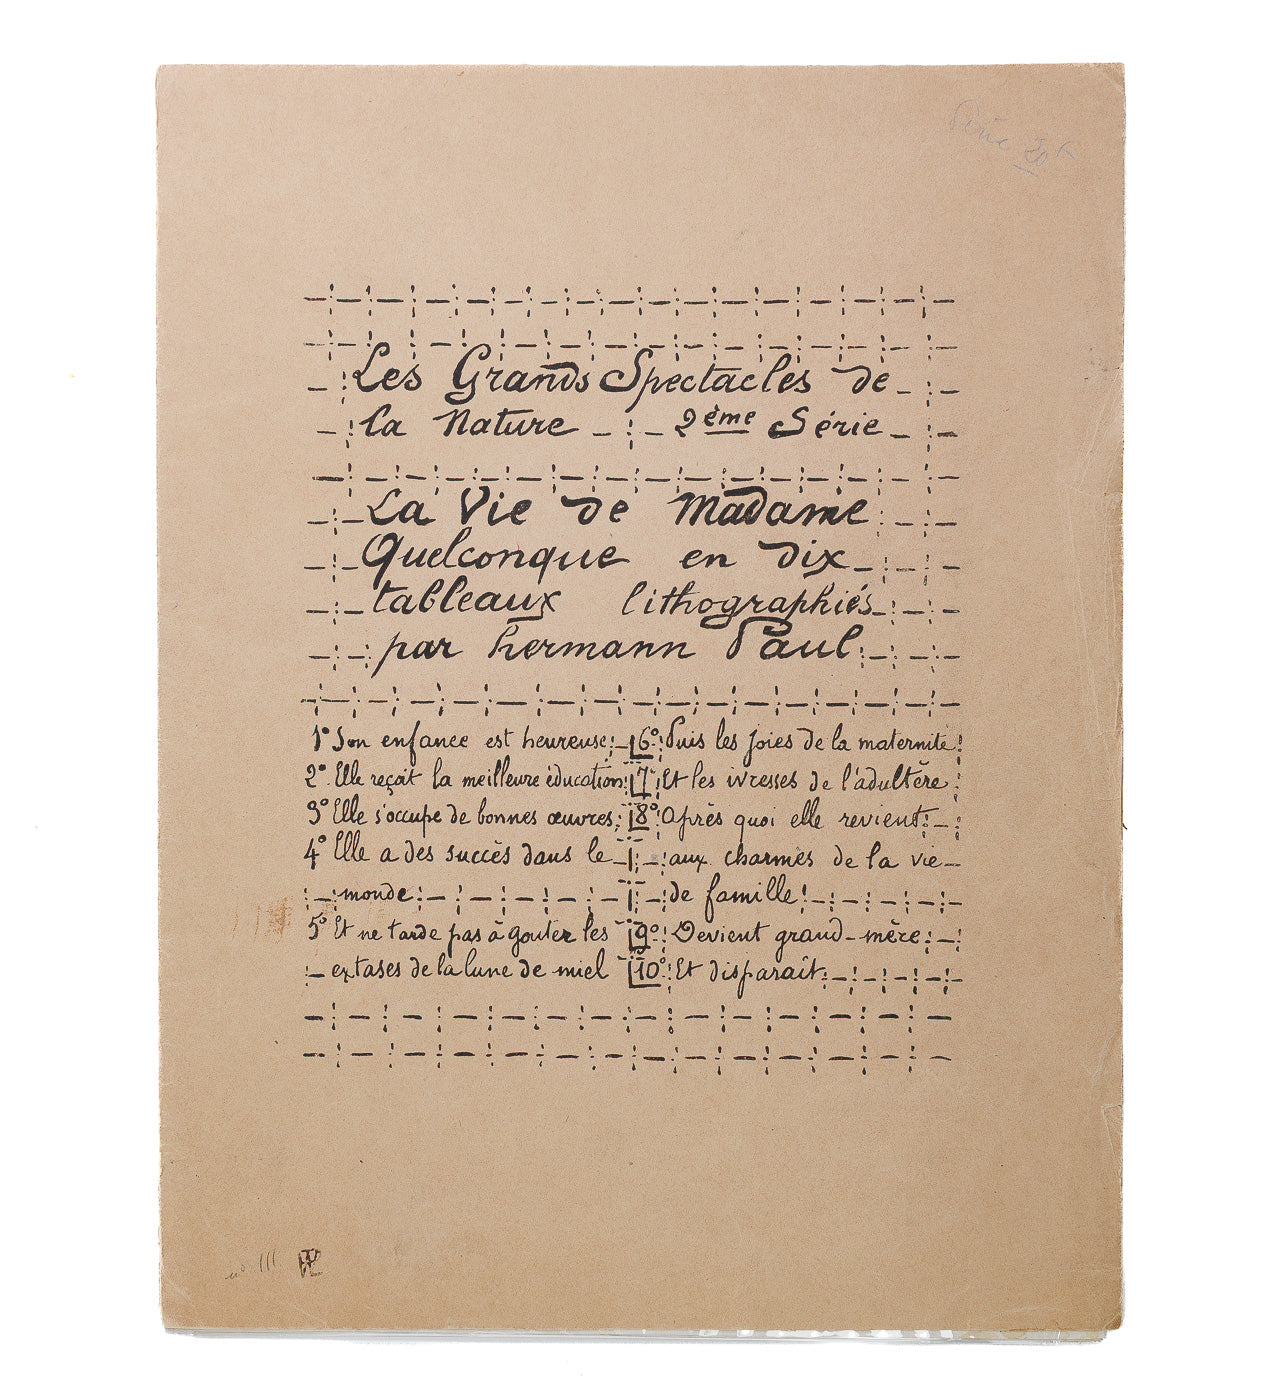 Série 20f
Les Grands Spectacles de
la Nature 2ème Série
La Vie de Madame
Quelconque en dix
tableaux lithographiés
par hermann Paul
1° Son enfance est heureuse
2° Elle reçoit la meilleure éducation
3° Elle s'occupe de bonnes œuvres
4° Elle a des succès dans le
monde
5° Et ne tarde pas à goûter les
extases de la lune de miel
6° Puis les joies de la maternité
7° Et les ivresses de l'adultère
8° Après quoi elle revient
aux charmes de la vie
de famille
9° Devient grand-mère
10° Et disparaît
no. 111